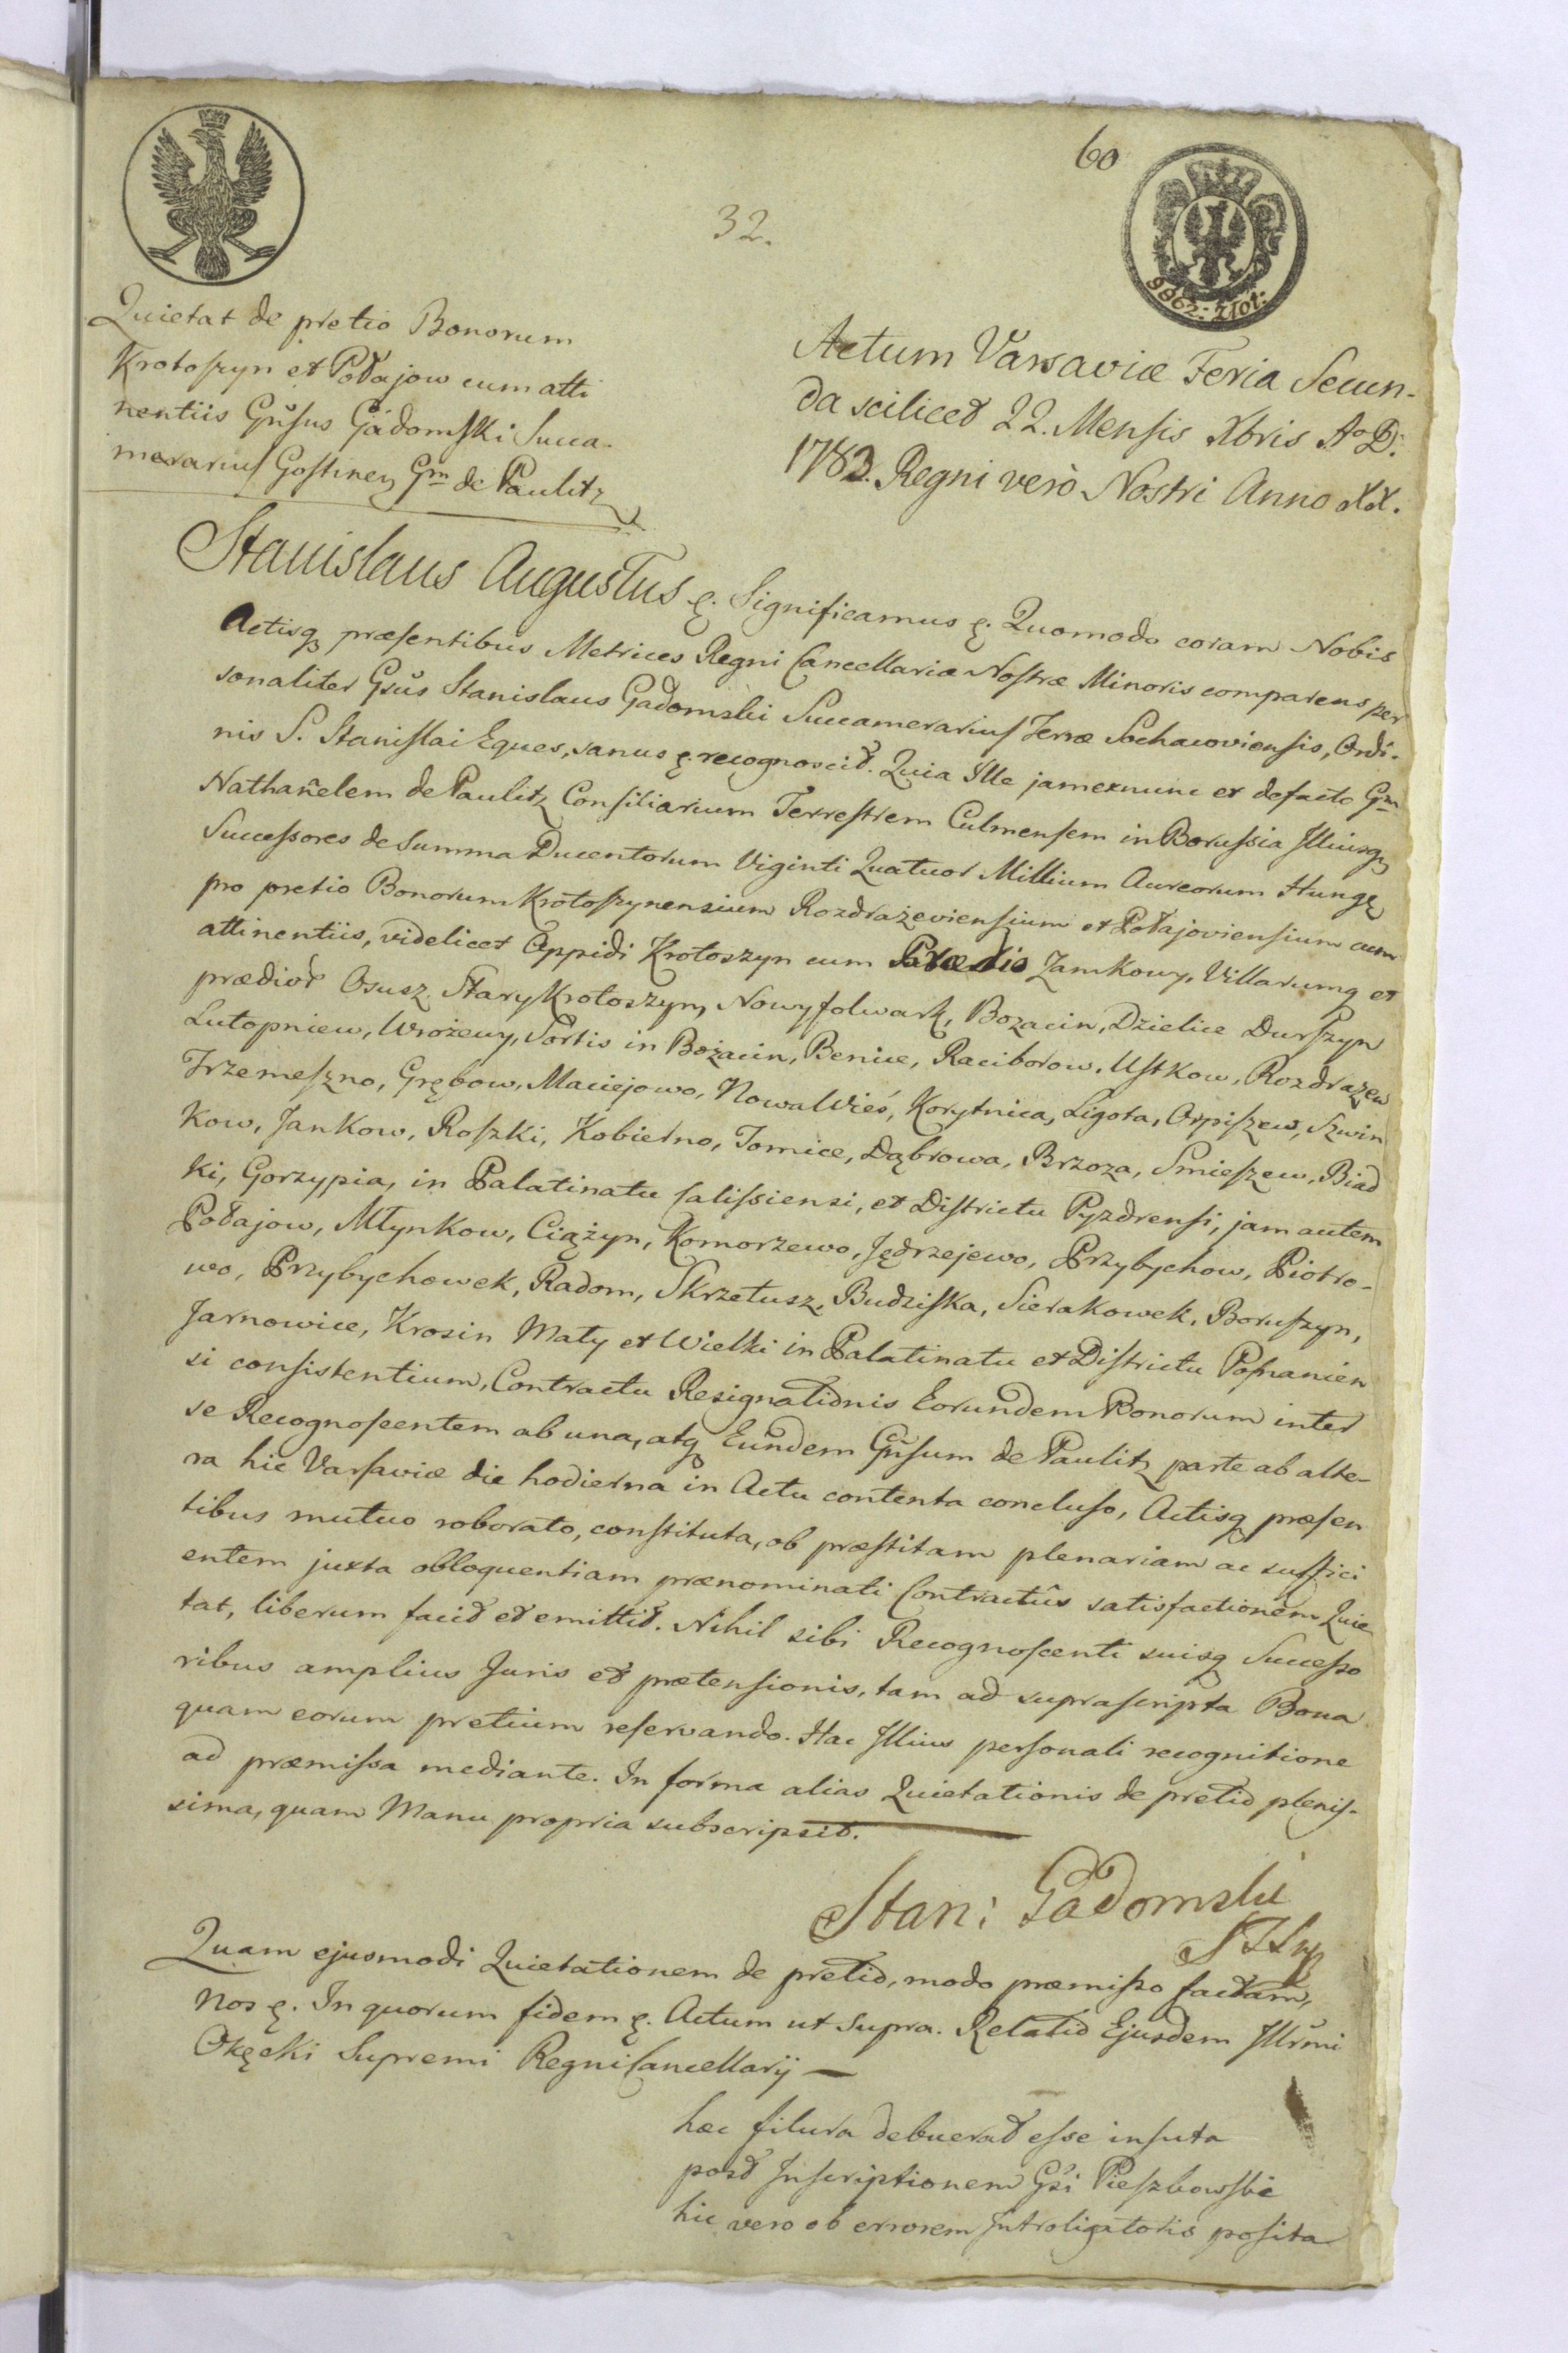 60
32.
9962: Złot:
Quietat de pretio Bonorum
Krotoszyn et Połajow cum atti
nentiis Gnsus Gadomski Succa-
merarius Gostinen Gm de Paulitz
Actum Varsaviæ Feria Secun-
da scilicet 22. Mensis Xbris Ao D:
1783. Regni verò Nostri Anno XX.
Stanislaus Augustus &. Significamus &. Quomodo coram Nobis
Actisq præsentibus Metrices Regni Cancellariæ Nostræ Minoris comparens per
sonaliter Gsus Stanislaus Gadomski Succamerarius Terræ Sochacoviensis, Ordi-
nis S. Stanislai Eques, sanus &. recognoscit. Quia Ille jam exnunc et defacto Gm
Nathanelem de Paulitz Consiliarium Terrestrem Culmensem in Borussia Illiusq
Successores de Summa Ducentorum Viginti Quatuor Millium Aureorum Hung
pro pretio Bonorum Krotoszynensium Rozdrażeviensium et Połajoviensium cum
attinentiis, videlicet Oppidi Krotoszyn cum Prædio Zamkowy, Villarumq et
prædior Osusz, Stary Krotoszyn, Nowyfolwark, Bozacin, Dzielice Durszyn
Lutopniew, Wrożewy, Sortis in Bożacin, Benice, Raciborow, Ustkow, Rozdrażew
Trzemeszno, Grębow, Maciejowo, Nowa Wieś, Korytnica, Ligota, Orpiszew, Szwin
kow, Jankow, Roszki, Kobierno, Tomice, Dąbrowa, Brzoza, Smieszew, Biad
ki, Gorzypia, in Palatinatu Calissiensi, et Districtu Pyzdrensi, jam autem
Połajow, Młynkow, Ciążyn, Komorzewo, Jędrzejewo, Przybychow, Piotro-
wo, Przybychowek, Radom, Skrzetusz, Budziska, Sierakowek, Boruszyn,
Jarnowice, Krosin Mały et Wielki in Palatinatu et Districtu Posnanien
si consistentium, Contractu Resignationis Eorundem Bonorum inter
se Recognoscentem ab una, atq Eundem Gnsum de Paulitz parte ab alte-
ra hic Varsaviæ die hodierna in Actu contenta concluso, Actisq præsen
tibus mutuo roborato, constituta, ob præstitam plenariam ac suffici
entem juxta obloquentiam prænominati Contractûs satisfactionem Quie
tat, liberum facit et emittit. Nihil sibi Recognoscenti suisq Successo
ribus amplius Juris et prætensionis, tam ad suprascripta Bona
quam eorum pretium reservando. Hac Illius personali recognitione
ad præmissa mediante. In forma alias Quietationis de pretio plenis-
sima, quam Manu propria subscripsit.
Stan: Gadomski
Quam ejusmodi Quietationem de pretio, modo præmisso factam,
Nos &. In quorum fidem &. Actum ut supra. Relatio Ejusdem Illrmi
Okęcki Supremi Regni Cancellarij
hæc filura debuerat esse insuta
post Inscriptionem Gsi Pieszkowski
hic vero ob errorem Introligatoris posita